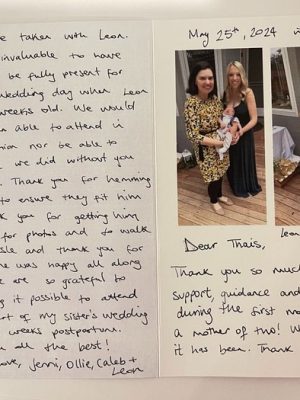 e taken with Leon.
invaluable to have
be fully present for
wedding day when Leon
weeks old. We would
n able to attend in
nor be able to
we did without you
. Thank you for hemming
to ensure they fit him
k you for getting him
for photos and to walk
sle and thank you for
he was happy all along
e are so grateful to
g it possible to attend
rt of my sister's wedding
weeks postpartum.
h all the best!
ove, Jenni, Ollie, Caleb +
Leon
May 25th, 2024
Dear Thais,
Thank you so much
support, guidance and
during the first mo
a mother of two! W
it has been. Thank